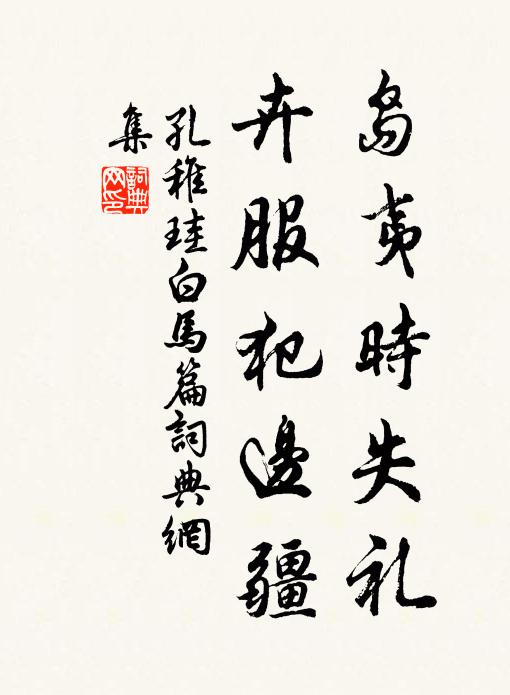 島夷時失礼
卉服犯邊疆
孔稚珪白馬篇詞典網
集
詞典
网印